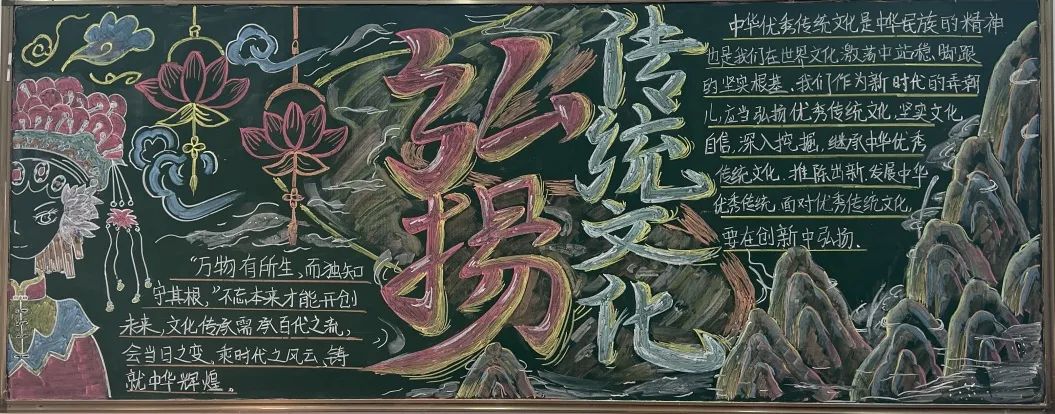 弘扬
传统文化
"万物有所生，而独知
守其根，"不忘本来才能开创
未来，文化传承需承百代之流，
会当日之变，乘时代之风云、铸
就中华辉煌。
中华优秀传统文化是中华民族的精神
也是我们在世界文化激荡中站稳脚跟
的坚实根基、我们作为新时代的弄潮
儿，应当弘扬优秀传统文化，坚实文化
自信，深入挖掘，继承中华优秀
传统文化，推陈出新，发展中华
优秀传统，面对优秀传统文化，
要在创新中弘扬、